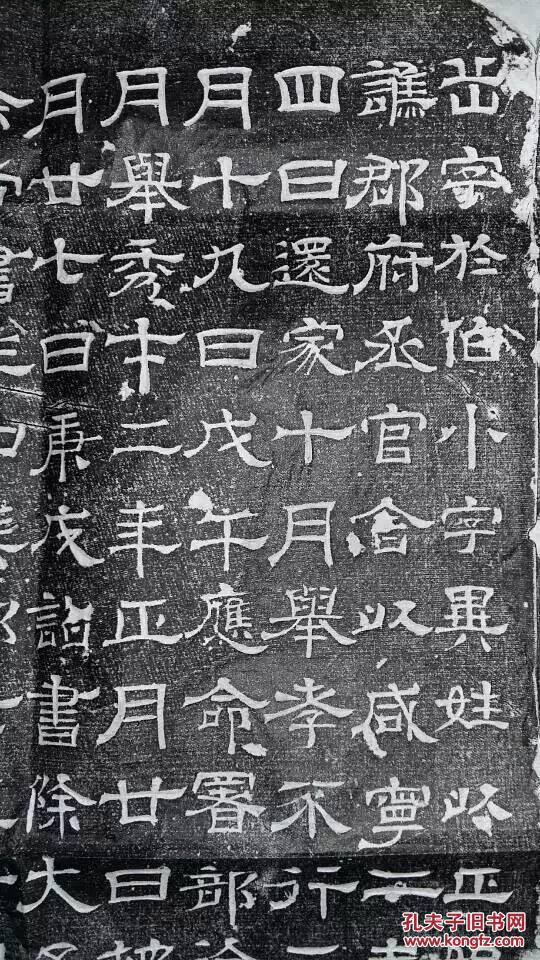 岳字於伯小字異姓以正
譙郡府丞官舍以咸寧二
四日還家十月舉孝不行
月十九日戊午應命署部
月舉秀才二年正月廿日被
月廿七日庚戌詔書除大
孔夫子旧书网
www.kongfz.com